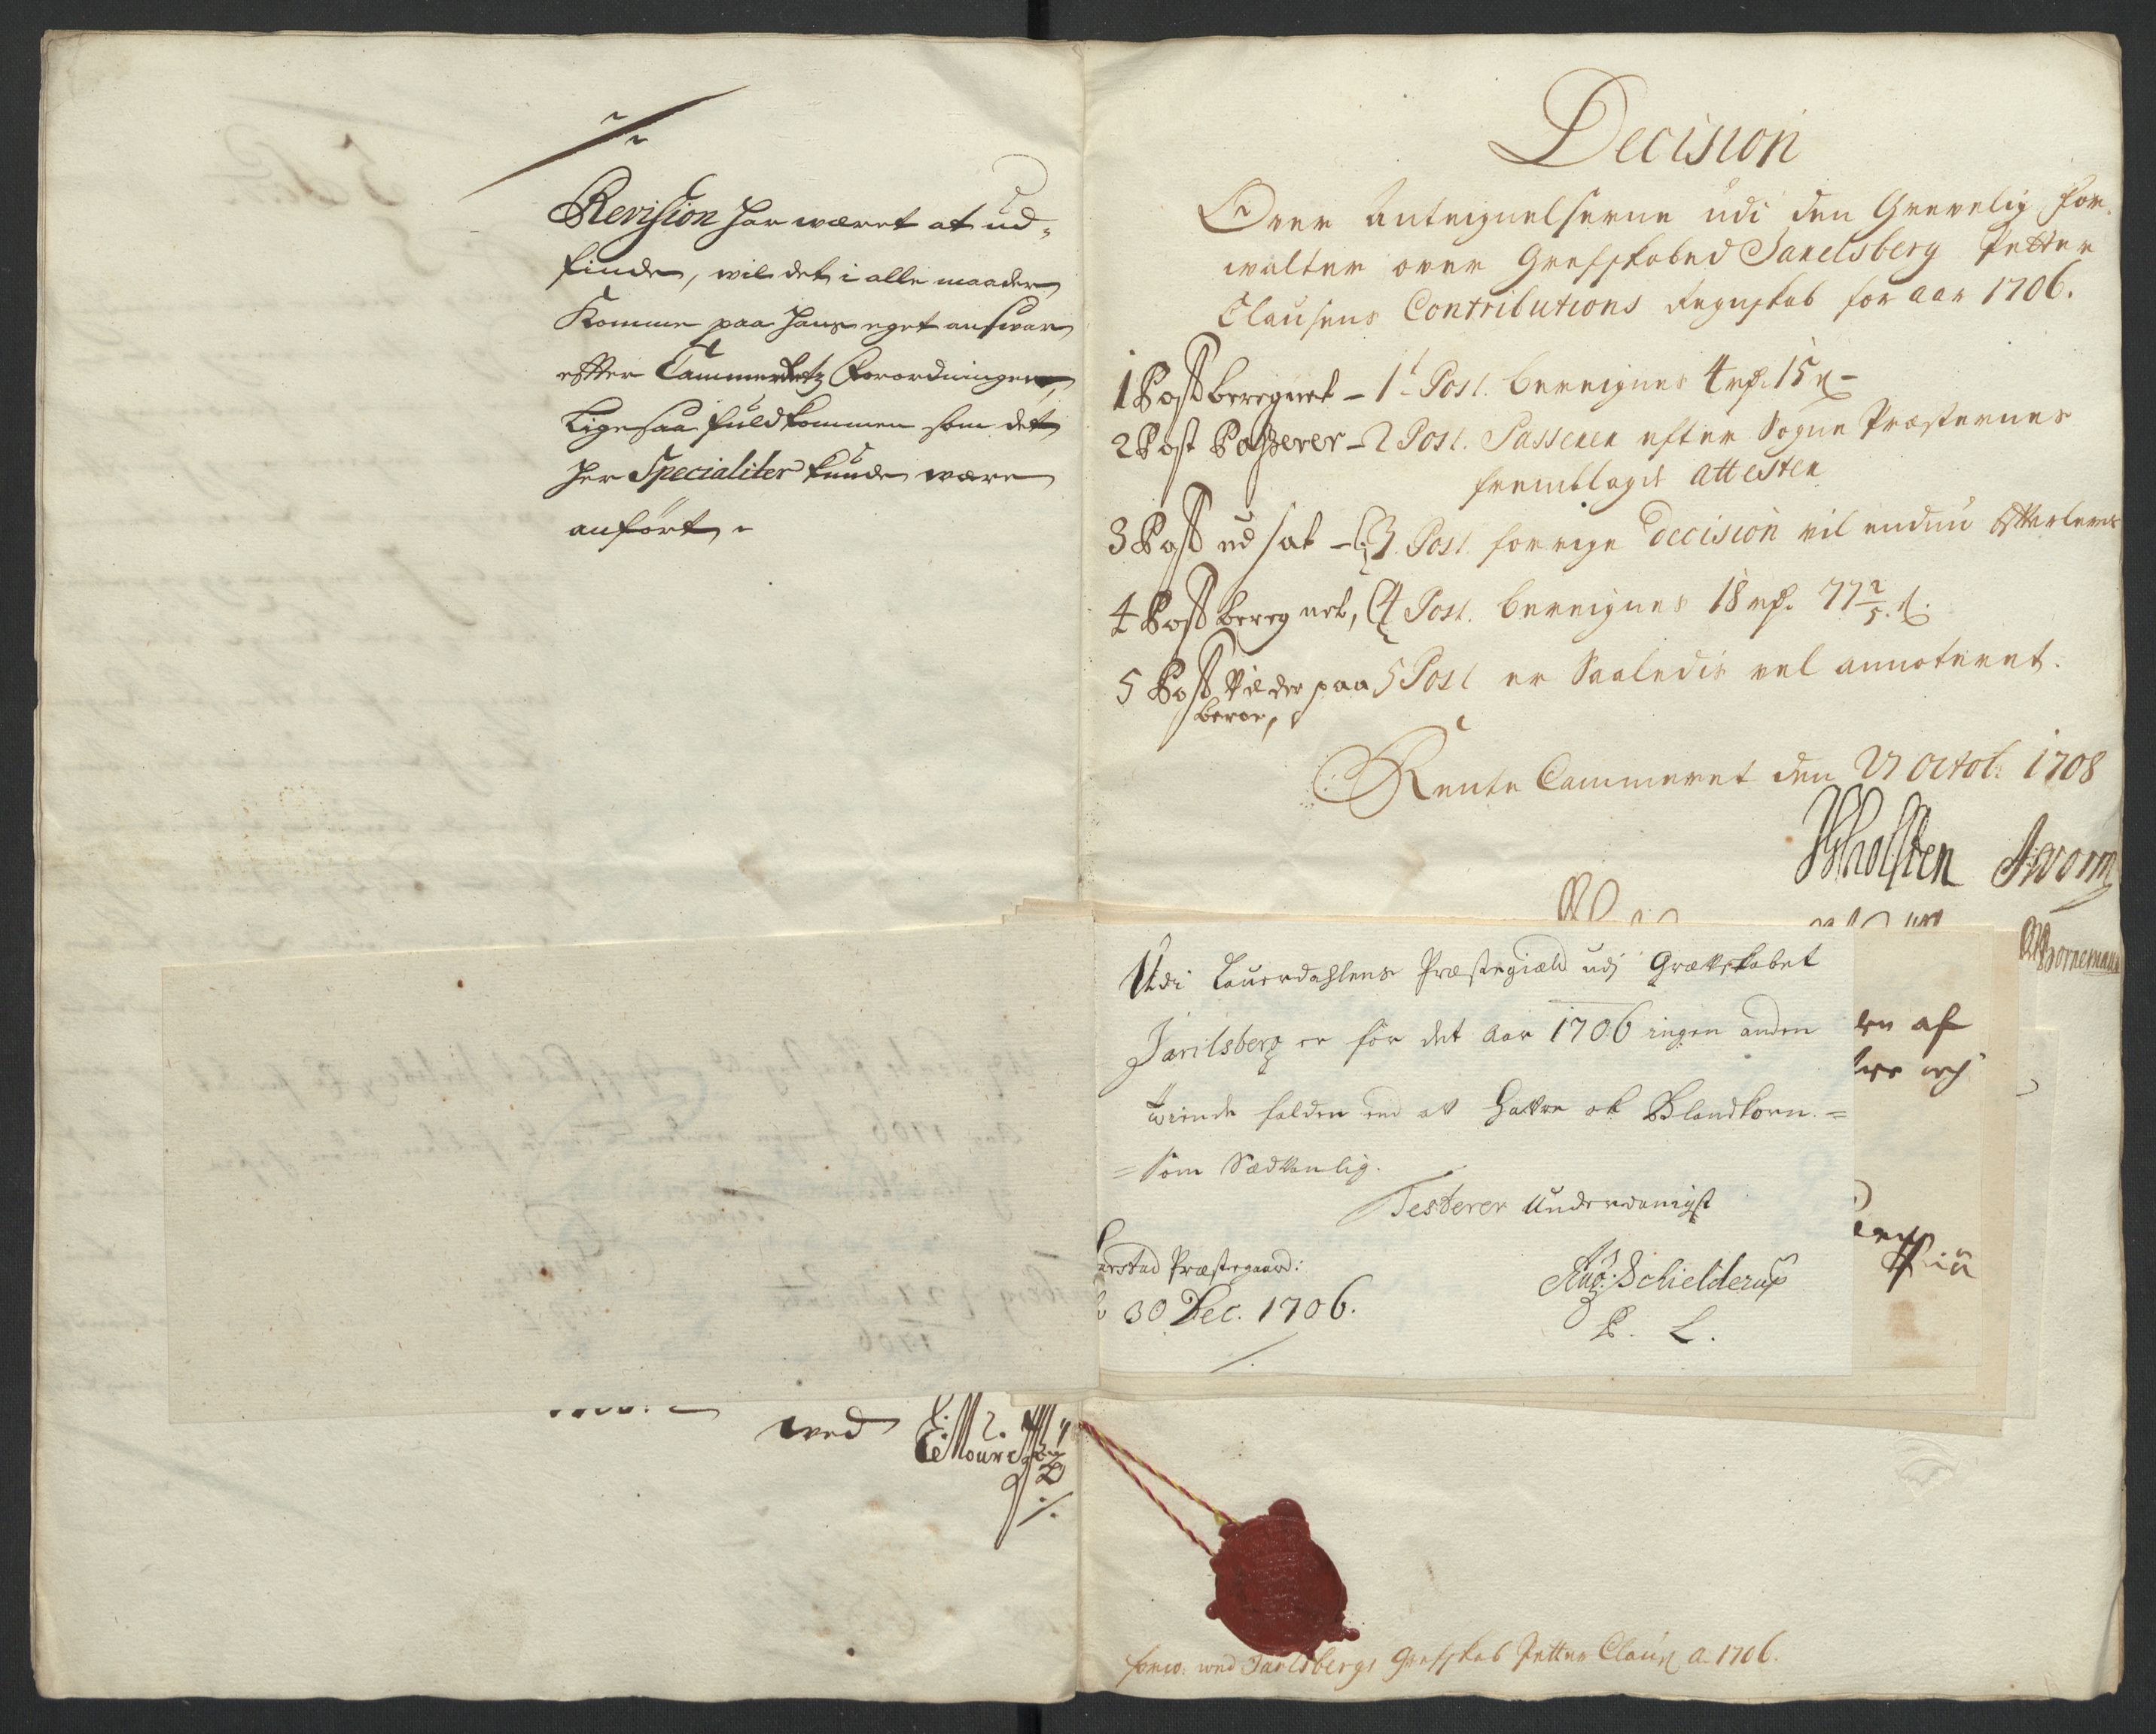 Revision har wæret at ud-
finde, wil det i alle maader
Komme paa hans eget answar
effter Cammer Forordningen,
Ligesaa fuldkommen som det
her Specialiter kunde være
anført,
wed
Decision
Over Anteignelserne udi den Grevelig For-
walter over Grefskabed Jarelsberg Petter
Clausens Contributions Regnskab for aar 1706.
1 Post beregnet - 1t Post. bereignes 4 rd. 15 s -
2 Post Passerer - 2 Post. Passerer efter Sogne Præsternes
fremblagde attester
3 Post ud sat - 3. Post. forrige Decision vil endnu effterleves
4 Post bereg net, 4 Post. bereignes 18 rd. 77 2/5 s.
5 Post Vil der paa 5 Post er Saaledis vel annoteret.
beroe,
Rente Cammeret den 27 Octob: 1708
Holsten JWorm
Bornemann
Udi Lauerdahlens Præstegiæld udj Græffskabet
Jarilsberg er for det Aar 1706 ingen anden
tiende falden end aff Haffre ok Blandkorn. =
= Som Sædvanlig.
Testerer Underdanigst
Præstegaard:
30 Dec. 1706.
Aug: Schielderup
P. L.
en af
wed Jarlsbergs Grefskab Petter Claus: A. 1706.